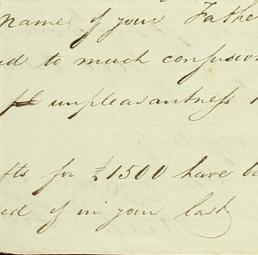 name of your Father
to much confusion
unpleasantness
for £1500 have
of in your last